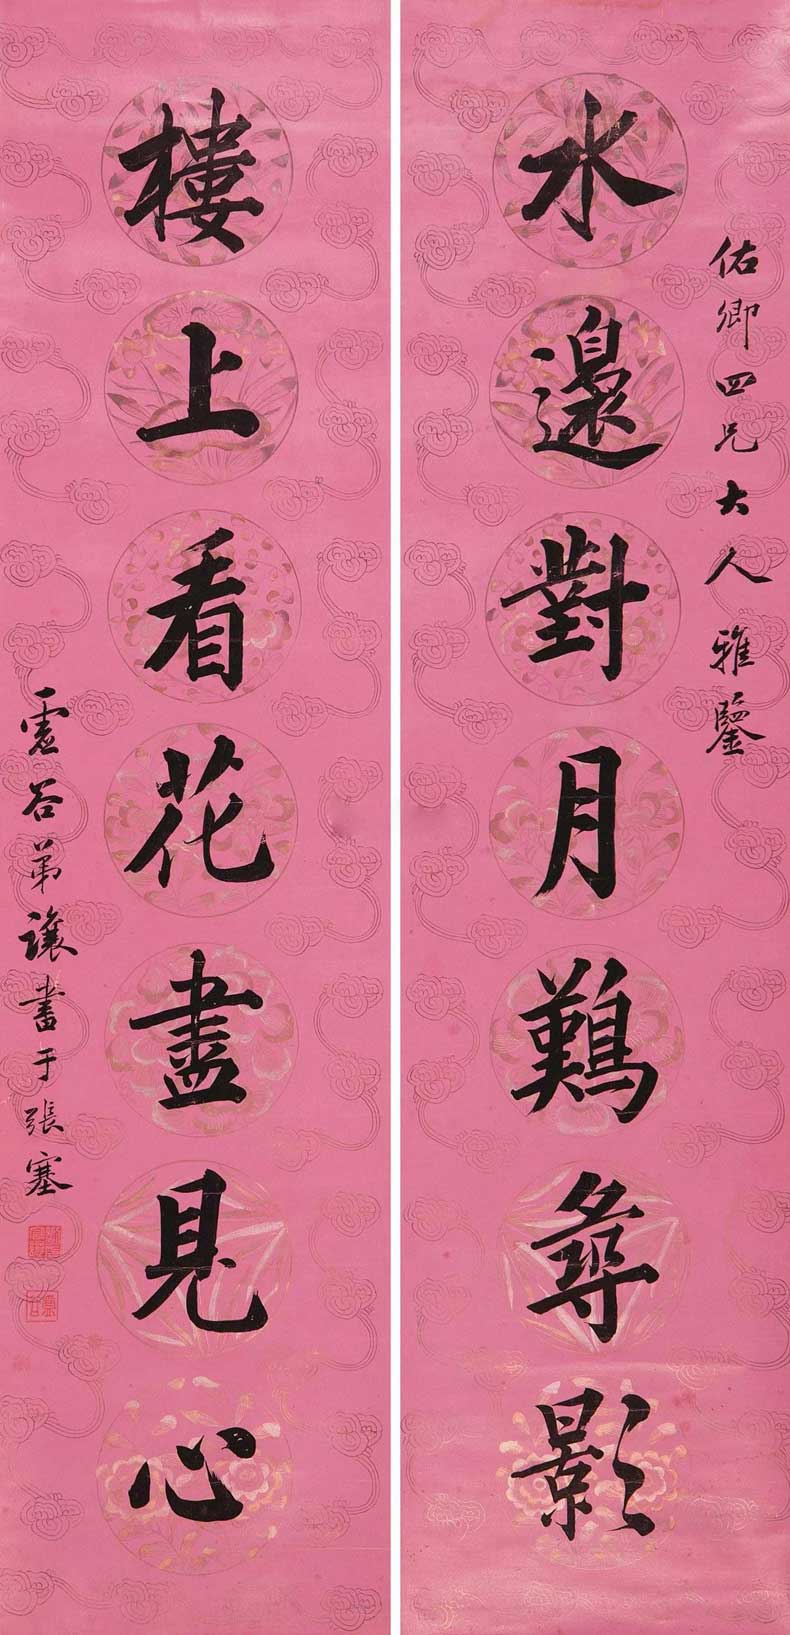 佑卿四兄大人雅鑒
水邊對月難尋影
樓上看花盡見心
虛谷弟讓書于張塞